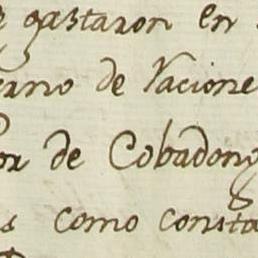 gastaron en
erno de Racione
or de Cobadong
s como consta